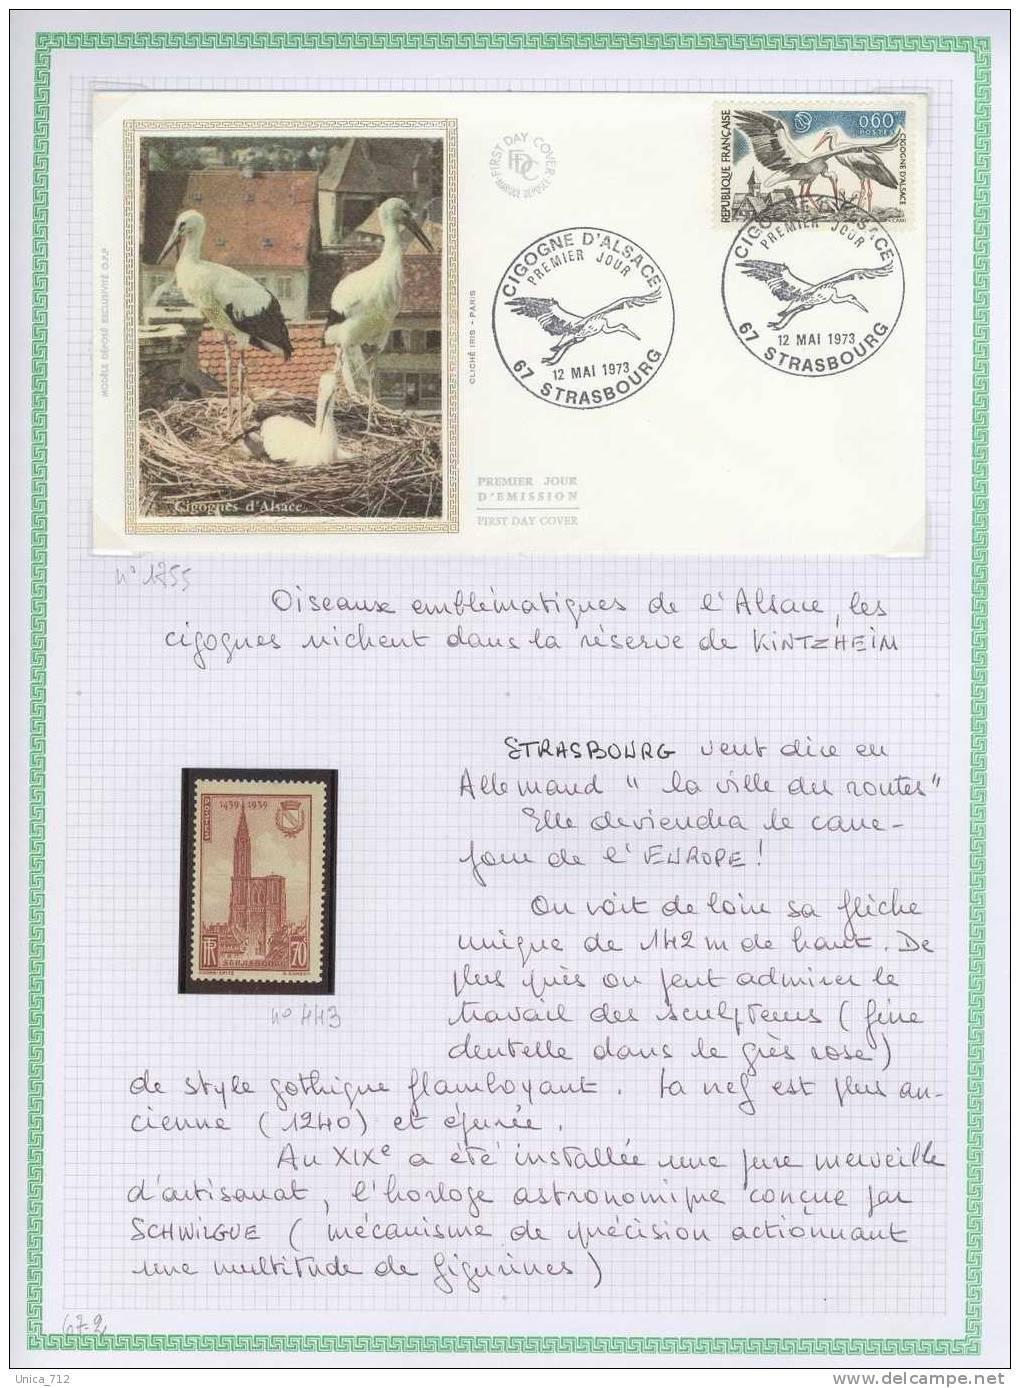 FIRST DAY COVER
FDC
MARQUE DÉPOSÉE
0,60
POSTES
RÉPUBLIQUE FRANÇAISE
CIGOGNE D'ALSACE
CIGOGNE D'ALSACE
PREMIER JOUR
12 MAI 1973
67 STRASBOURG
CIGOGNE D'ALSACE
PREMIER JOUR
12 MAI 1973
67 STRASBOURG
MODÈLE DÉPOSÉ EXCLUSIVITÉ O.P.P
CLICHÉ IRIS - PARIS
Cigognes d'Alsace
PREMIER JOUR
D'EMISSION
FIRST DAY COVER
n° 1755
Oiseaux emblématiques de l'Alsace, les
cigognes nichent dans la réserve de KINTZHEIM
STRASBOURG veut dire en
Allemand "la ville des routes"
Elle deviendra le carre-
four de l'EUROPE!
On voit de loin sa flèche
unique de 142 m de haut. De
plus près on peut admirer le
travail des sculpteurs (fine
dentelle dans le grès rose)
de style gothique flamboyant. La nef est plus an-
cienne (1240) et épurée.
Au XIXe a été installée une pure merveille
d'artisanat, l'horloge astronomique conçue par
SCHWILGUE (mécanisme de précision actionnant
une multitude de figurines)
1439 1939
POSTES
RF
70
STRASBOURG
n° 443
67-2
Unica_712
delcampe.net